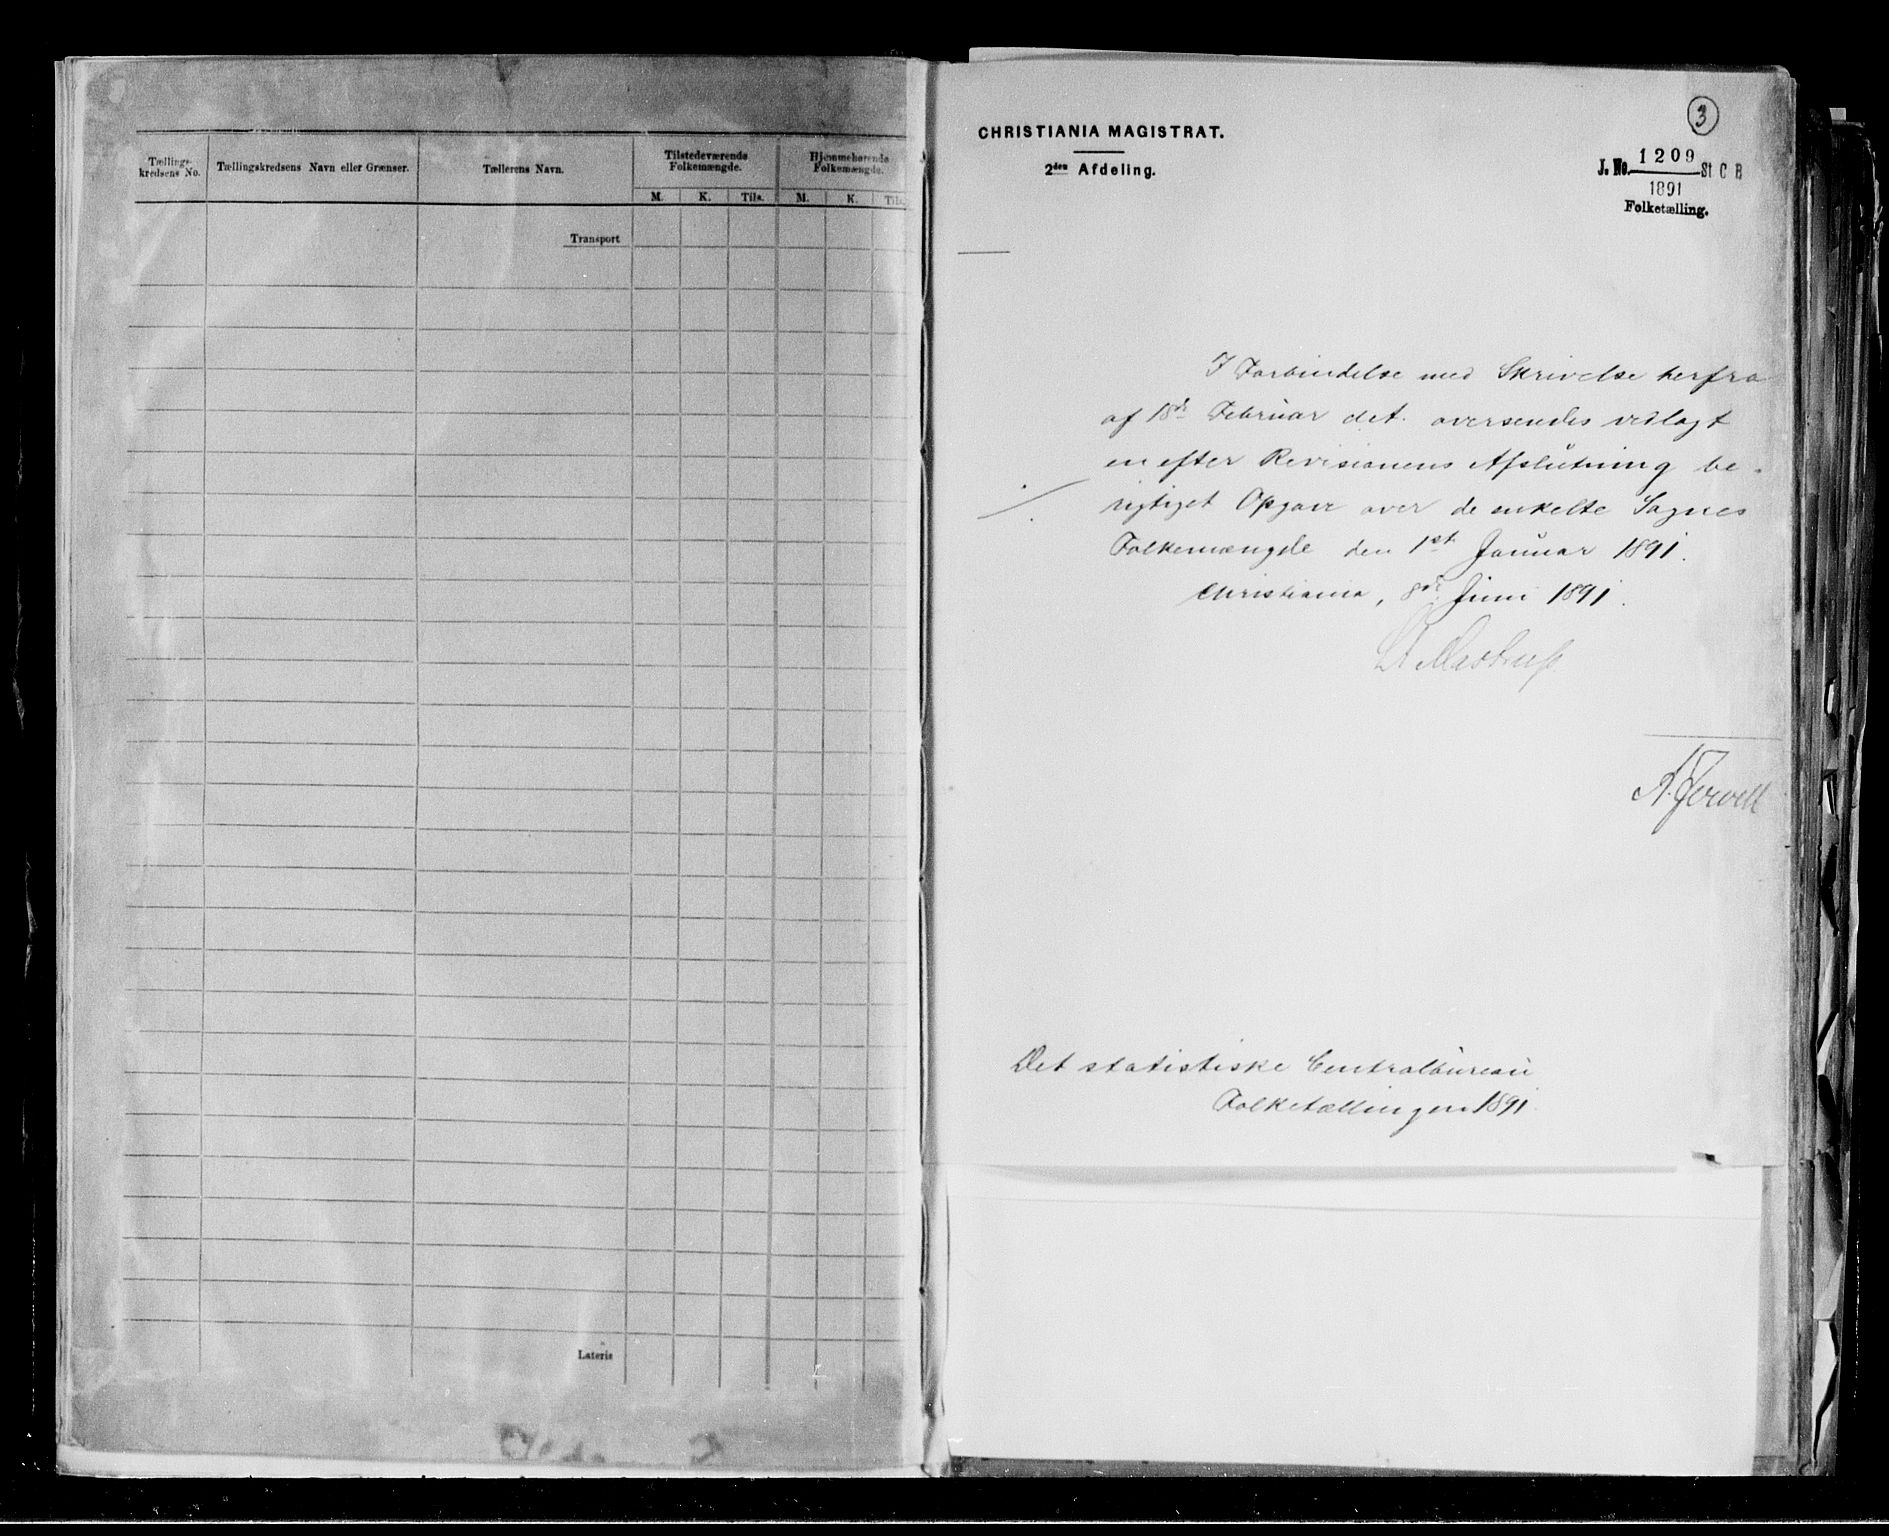 Tællings-
kredsens No.
Tællingskredsens Navn eller Grænser.
Tællerens Navn.
Tilstedeværende
Folkemængde.
Hjemmehørende
Folkemængde.
M. K. Tils. M. K. Tils.
Transport
Lateris
3
CHRISTIANIA MAGISTRAT.
2den Afdeling.
J. No. 1209 St. C B
1891
Folketælling.
I Forbindelse med Skrivelse herfra
af 18de Februar d.A. oversendes vedlagt
en efter Revisionens Afslutning be-
rigtiget Opgave over de enkelte Sognes
Folkemængde den 1st Januar 1891.
Christiania, 8de Juni 1891.
Det statistiske Centralbureau
Folketællingen 1891